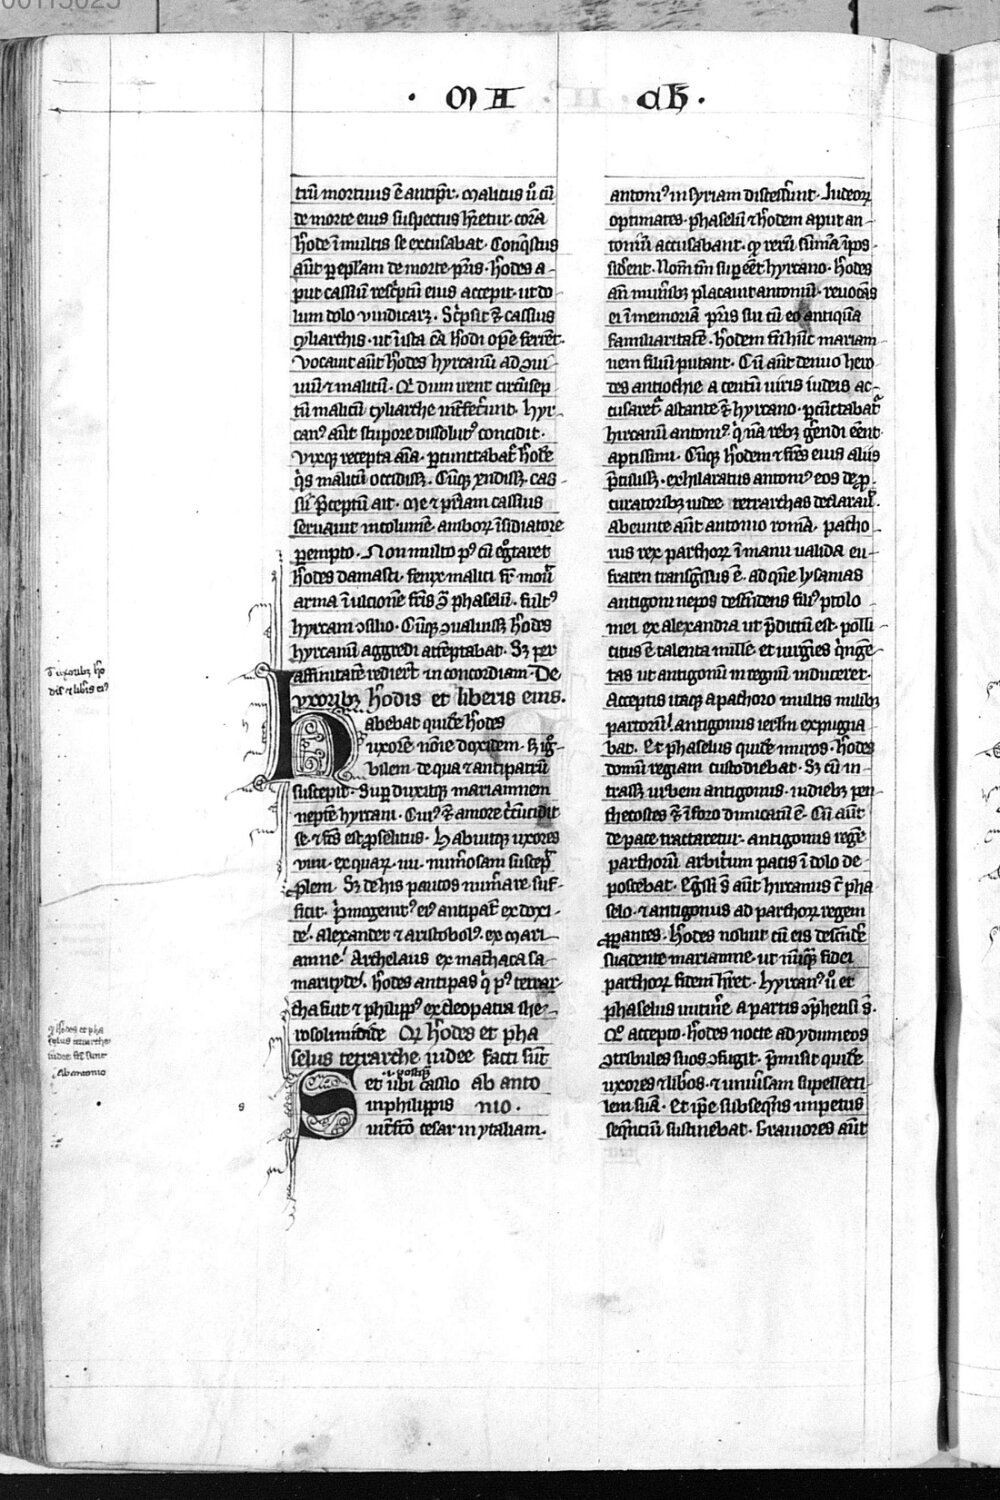 · MA CH ·
trū mortuus ē antipr̄. malicus ū cū
de morte eius suspectus hr̄etur corā
h'ode ī multis se excusabat. Conq̄stus
aūt p epl'am de morte pr̄is. h'odes a-
put cassiū rescptū eius accepit. ut do
lum dolo vindicarꝫ. Scpsit ⁊ cassius
cyliarchis. ut ī ista cā h'odi ope ferrēt.
Vocauit aūt h'odes hyrcanū ad ꝯui-
uiū ⁊ malicū. Qd dum uent circūsep
tū malicū cyliarche int'fecerunt. hyr-
can⁹ aūt stupore dissolut⁹ concidit.
Vixqꝫ recepta aīa. pcunctabat' h'ode
q's malicū occidissꝫ. Cūqꝫ rn̄dissꝫ cas-
sii pceptū ait. me ⁊ pr̄iam cassius
seruauit incolumē. amborꝝ īsidiatore
perempto. Non multo p⁹ cū eḡtaret
h'odes damasci. felix malici fr̄ mouit
arma ī ulcionē fr̄is ꝯ phaselū. fult⁹
hyrcani ꝯsilio. Cūqꝫ ꝯualuissꝫ h'odes
hyrcanū aggredi acceptabat. Sꝫ per
affinitatē redierūt in concordiam. De
uxoribꝫ h'odis et liberis eius.
Habebat quidē h'odes
uxorē nōie doxidem. S; ig-
bilem. de qua ⁊ antipatrū
suscepit. Supduxitqꝫ mariannem
neptē hyrcani. Cui⁹ ⁊ amore t'cucidit
se. ⁊ fr̄is est psecutus. Habuitqꝫ uxores
viiii. ex quarꝝ. iiii. nūosam suscepit
plem. Sꝫ de his paucos nūmare suf-
ficit. p'mogenit⁹ ei⁹ antipat' ex doxi-
de. alexander ⁊ aristobol⁹. ex mari-
anne. Archelaus ex mathaca sa-
maritide. h'odes antipas q' p⁹ tetrar-
cha fuit ⁊ philipp⁹ ex cleopatra ihe-
rosolimitide. Qd h'odes et pha
selus tetrarche iudee facti sūt
Set ubi cassio ab anto
in philippis nio.
int'fc̄o cesar in ytaliam.
antoni⁹ in syriam discesserunt. Iudeorꝝ
optimates. phaselū ⁊ h'odem aput an-
toniū accusabant. qd rerū sūmā ipos-
siderent. Nom̄ tm̄ supeēt hyrcano. h'odes
aūt mun'ibꝫ placauit antoniū. reuocās
ei ī memoriā pr̄is sui cū eo antiquā
familiaritatē. h'odem fui hūt mariam-
nem filiū putant. Cū aūt denuo hero-
des antiochie a centū uiris iudeis ac-
cusaret' astante ⁊ hyrcano. pcūctabat'
hircanū antoni⁹. q' nā rebꝫ gerendi eēnt
aptissimi. Cūqꝫ h'odem ⁊ fr̄es eius aliis
p'tulissꝫ. exhilaratus antoni⁹ eos de p
curatoribꝫ iudee tetrarchas declarauit.
abeunte aūt antonio romā. pacho-
rus rex parthorꝝ ī manu ualida eu-
fraten transg̃ssus ē. ad quē lysanias
antigoni nepos descendens fili⁹ ptolo-
mei ex alexandra ut p̄dictū est. polli-
citus ē talenta mille. et uirgines q'nge-
tas ut antigonū in regnū induceret.
Acceptis itaqꝫ a pachoro multis milibꝫ
partorū. antigonus ier̄lm expugna
bat. Et phaselus quidē muros. h'odes
domū regiam custodiebat. Sꝫ cū in-
trassꝫ urbem antigonus. ī diebꝫ pen-
thecostes ⁊ ī foro dimicatū ē. Cū aūt
de pace tractaretur. antigonus regē
parthorū arbit'um pacis ī dolo de-
poscebat. Egressi s̄ aūt hircanus ⁊ pha
selo. ⁊ antigonus ad parthorꝝ regem
pperantes. h'odes noluit cū eis descend'e
suadente mariamne. ut nūq̄ fidei
parthorꝝ fidem hr̄et. Hyrcan⁹ ū et
phaselus in itin'e a partis ꝯphensi s̄.
Qd accepto. h'odes nocte ad ydumeos
ꝯtribules suos ꝯfugit. p'misit quidē
uxores ⁊ lib'os. ⁊ uniu'sam supellecti-
lem suā. Et ip̄e subseq̄ns impetus
seq̄nciū sustinebat. Grauiores aūt
d' uxoribꝫ h'o
dis ⁊ lib'is ei⁹
qd h'odes et pha
selus tetrarche
iudee fc̄i sunt
ab antonio